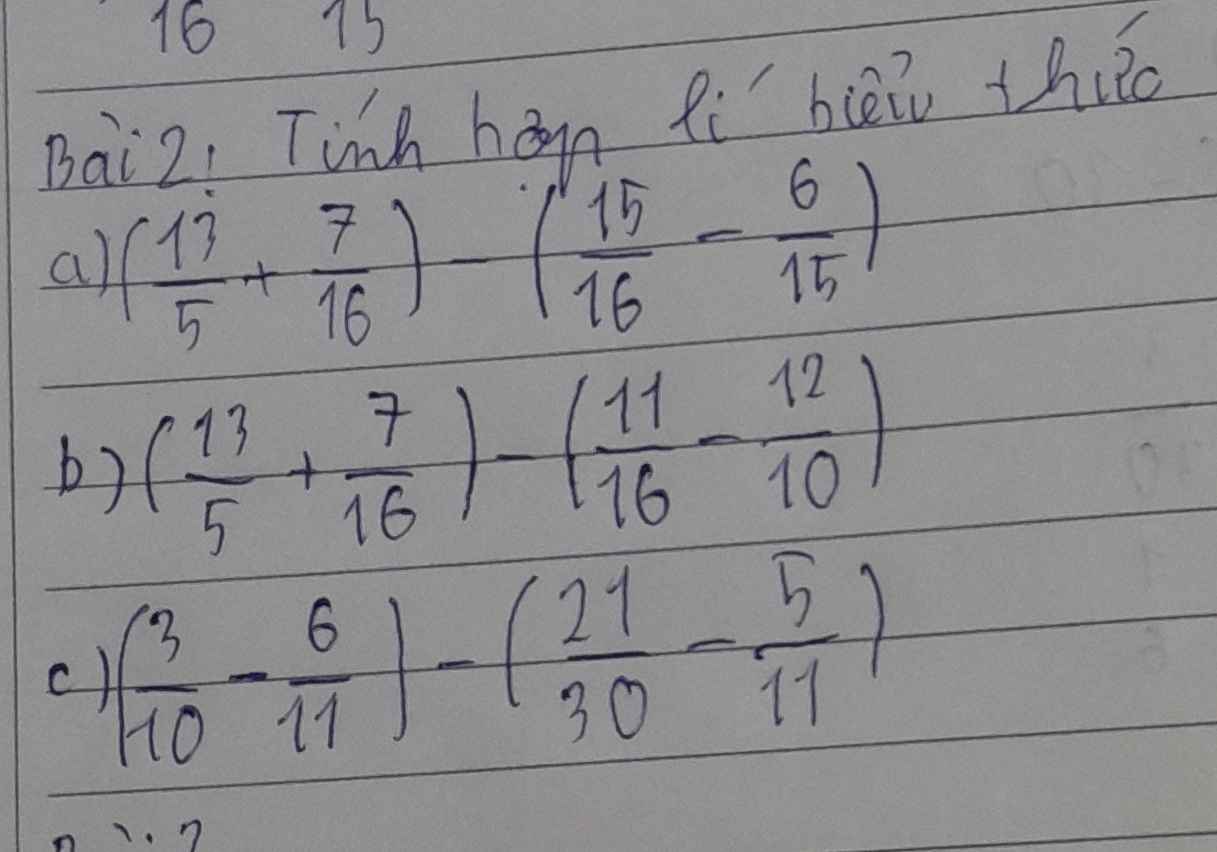 16 15
Bài 2: Tính hợp lí biểu thức
a) (13/5 + 7/16) - (15/16 - 6/15)
b) (13/5 + 7/16) - (11/16 - 12/10)
c) (3/10 - 6/11) - (21/30 - 5/11)